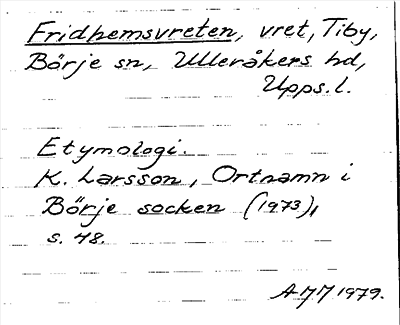 Fridhemsvreten, vret, Tiby,
Börje sn, Ulleråkers hd,
Upps.l.
Etymologi.
K. Larsson, Ortnamn i
Börje socken (1973),
s. 48.
1979.